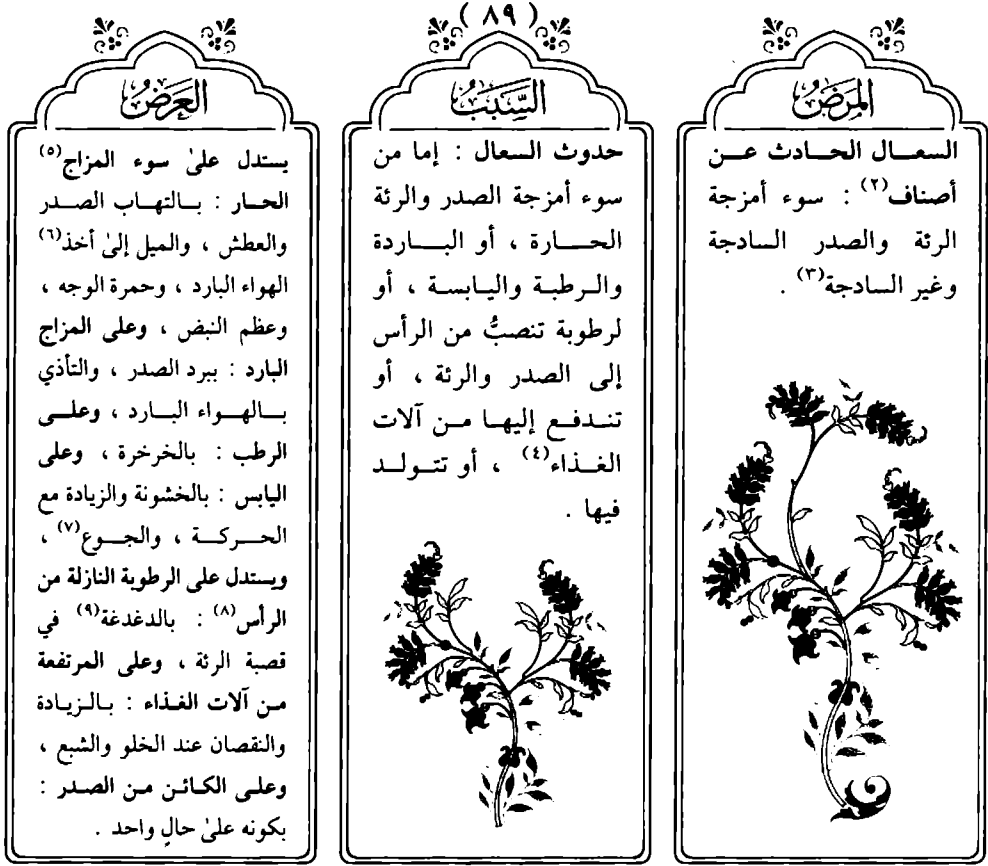 ( ٨٩ )
المَرَضُ
السعـــال الحـــادث عـــن
أصناف(٢) : سوء أمزجة
الرئة والصدر السادجة
وغير السادجة(٣) .
السَّبَبُ
حدوث السعال : إما من
سوء أمزجة الصدر والرئة
الحـــارة ، أو البـــاردة
والـرطبـة واليـابسـة ، أو
لرطوبة تنصبُّ من الرأس
إلى الصدر والرئة ، أو
تنـدفـع إليهـا مـن آلات
الغـذاء(٤) ، أو تتـولـد
فيها .
العَرَضُ
يستدل علىٰ سوء المزاج(٥)
الحـار : بـالتهـاب الصـدر
والعطش ، والميل إلىٰ أخذ(٦)
الهواء البارد ، وحمرة الوجه ،
وعظم النبض ، وعلى المزاج
البارد : ببرد الصدر ، والتأذي
بـالهـواء البـارد ، وعلـى
الرطب : بالخرخرة ، وعلى
اليابس : بالخشونة والزيادة مع
الحـركـة ، والجـوع(٧) ،
ويستدل على الرطوبة النازلة من
الرأس(٨) : بالدغدغة(٩) في
قصبة الرئة ، وعلى المرتفعة
مـن آلات الغـذاء : بـالـزيادة
والنقصان عند الخلو والشبع ،
وعلـى الكـائـن مـن الصـدر :
بكونه علىٰ حالٍ واحد .